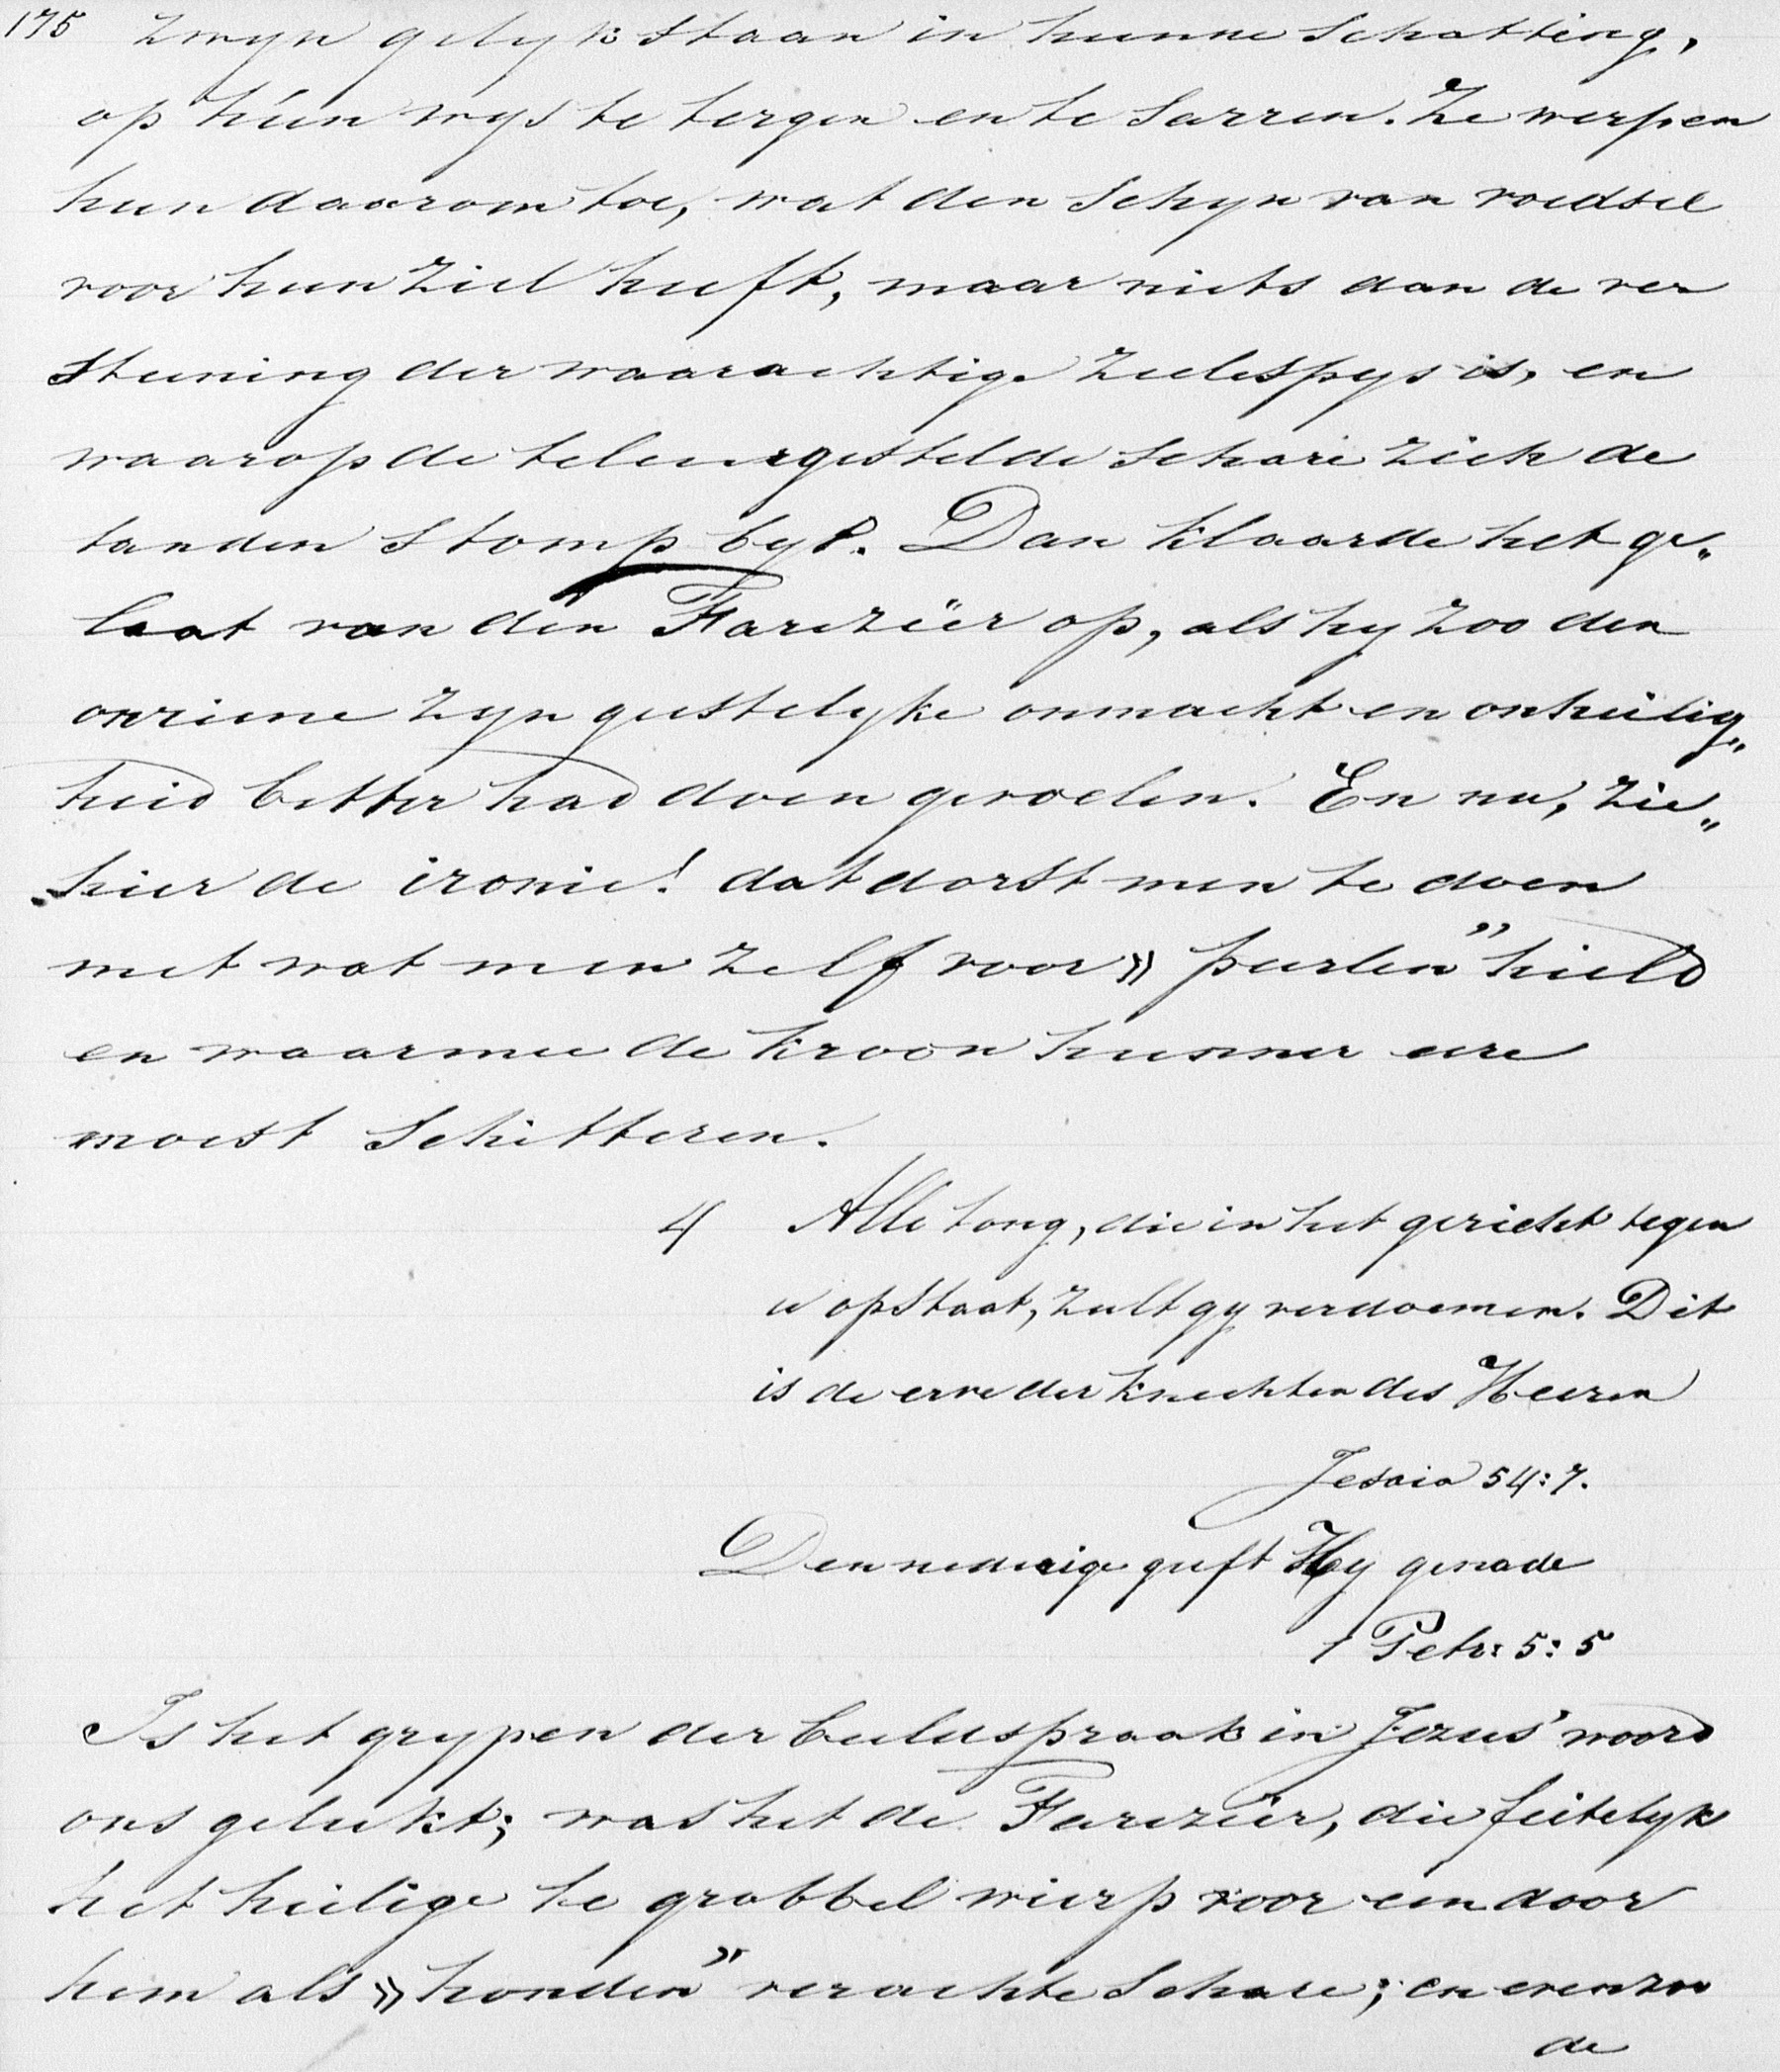 175 zwyn gelyk staan in hunne schatting,
op hún wys te tergen en te sarren. Ze werpen
hun daarom toe, wat den schyn van voedsel
voor hun ziel heeft, maar niets dan de ver
steening der waarachtige zielespys is, en
waarop de teleurgestelde schare zich de
tanden stomp byt. Dan klaarde het ge„
laat van dien Farizëer op, als hy zoo den
onreine zyn geestelyke onmacht en onheilig„
heid bitter had doen gevoelen. En nu, zie„
hier de ironie! dat dorst men te doen
met wat men zelf voor » peerlen” hield
en waarmee de kroon hunner eere
moest schitteren.
4 Alle tong, die in het gericht tegen
u opstaat, zult gy verdoemen. Dit
is de erve der knechten des Heeren
Jesaia 54:7.
Den nederige geeft Hy genade
1 Petr: 5:5
Is het grypen der beeldspraak in Jezus' woord
ons gelukt; was het de Farizeër, die feitelyk
het heilige te grabbel wierp voor een door
hem als » honden” verachte schare; en evenzoo
de